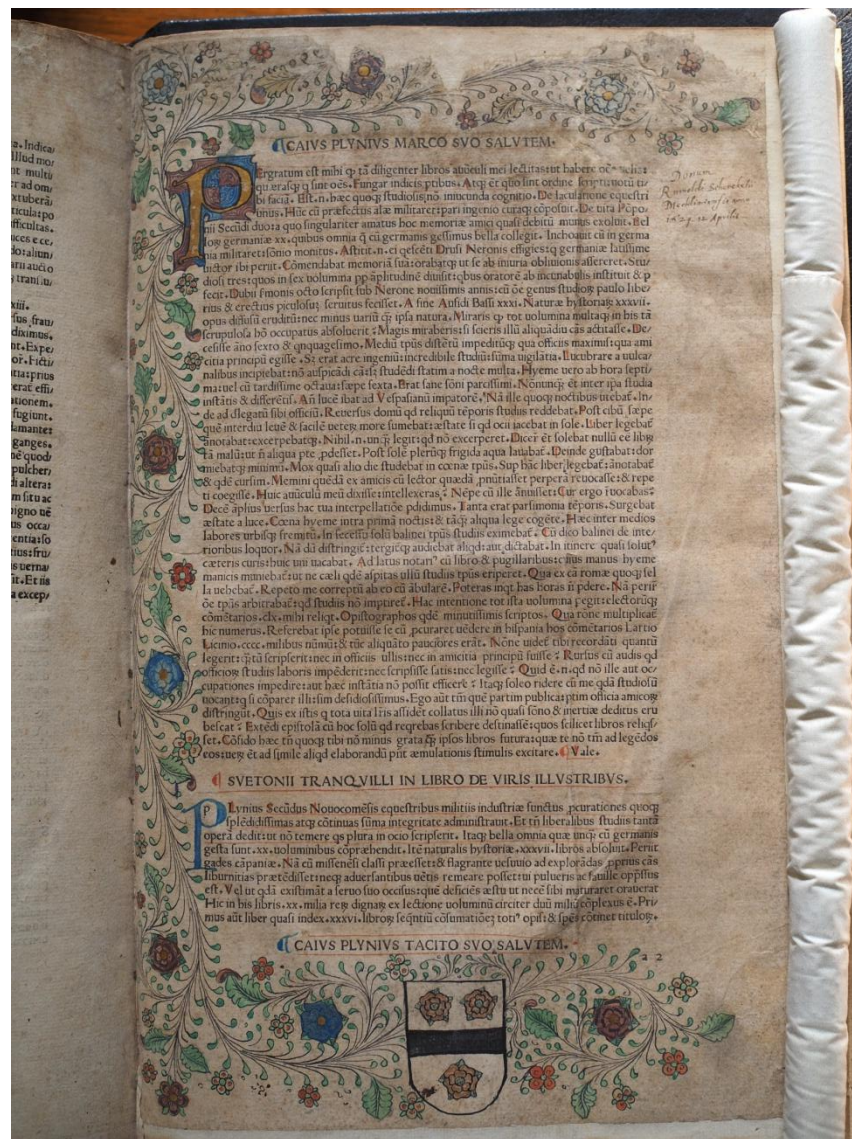 a. Indica
Illud mor
nt multi
r ad om
ticula: po
fficultas.
uces e ce,
transitu
xiii.
sus frau
diximus.
nt. Expe
or. Ficti
tia: prius
erat effi
ationem.
fugiunt.
lamante:
ganges.
pulcher
di altera:
m situ ac
us occa
entia: fo
tius: fru
s uerna
it. Et iis
a excep
CAIVS PLYNIVS MARCO SVO SALVTEM.
PErgratum est mihi ꝙ tā diligenter libros auūculi mei lectitas: ut habere
Fungar indicis ptibus. Atqꝫ ēt quo sint ordine
bi faciā. Est. n. hæc quoqꝫ studiosis nō iniucunda cognitio. De iaculatione equestri
unus. Hūc cū præfectus alæ militaret: pari ingenio curaqꝫ cōposuit. De uita Pōpo
nii Secūdi duo: a quo singulariter amatus hoc memoriæ amici quasi debitū munus exoluit. Bel
loꝝ germaniæ xx. quibus omnia q̄ cū germanis gessimus bella collegit. Inchoauit cū in germa
nia militaret: sōnio monitus. Astitit. n. ei q̇escēti Drusi Neronis effigies: q̇ germaniæ latissime
uictor ibi periit. Cōmendabat memoriā suā: orabatqꝫ ut se ab iniuria obliuionis assereret. Stu
diosi tres: quos in sex uolumina pp āplitudinē diuisit: q̇bus oratorē ab incunabulis instituit & p
fecit. Dubii sermonis octo scripsit sub Nerone nouissimis annis: cū oē genus studioꝝ paulo libe
rius & erectius piculosū seruitus fecisset. A fine Aufidi Bassi xxxi. Naturæ hystoriaꝝ xxxvii.
opus diffusū eruditū: nec minus uariū q̄ꝫ ipsa natura. Miraris ꝙ tot uolumina multaqꝫ in his tā
scrupulosa hō occupatus absoluerit: Magis miraberis: si scieris illū aliquādiu cās actitasse. De
cessisse āno sexto & qnquagesimo. Mediū tpus distētū impeditūqꝫ qua officiis maximis: qua ami
citia principū egisse. Sꝫ erat acre ingeniū: incredibile studiū: sūma uigilātia. Lucubrare a uulca
nalibus incipiebat: nō auspicādi cā: sꝫ studēdi statim a nocte multa. Hyeme uero ab hora septi
ma: uel cū tardissime octaua: sæpe sexta. Erat sane sōni parcissimi. Nōnunqꝫ ēt inter ipsa studia
instātis & differētis. An̄ lucē ibat ad Vespasianū impatorē. Nā ille quoqꝫ noctibus utebat. In
de ad dlegatū sibi officiū. Reuersus domū qd reliquū tēporis studiis reddebat. Post cibū sæpe
quē interdiu leuē & facilē ueteꝝ more sumebat: æstate si qd ocii iacebat in sole. Liber legebat
ānotabat: excerpebatqꝫ. Nihil. n. unq̄ꝫ legit: qd nō excerperet. Dicere ēt solebat nullū eē libꝝ
tā malū: ut ñ aliqua pte pdesset. Post solē pleruqꝫ frigida aqua lauabat. Deinde gustabat: dor
miebatqꝫ minimū. Mox quasi alio die studebat in cœnæ tpus. Sup hāc liber legebat: ānotabat
& qdē cursim. Memini quēdā ex amicis cū lector quædā pnūtiasset perperā reuocasse: & repe
ti coegisse. Huic auūculū meū dixisse: intellexeras: Nēpe cū ille ānuisset: Cur ergo reuocabas:
Decē āplius uersus hac tua interpellatiōe pdidimus. Tanta erat parsimonia tēporis. Surgebat
æstate a luce. Cœna hyeme intra primā noctis: & tāqꝫ aliqua lege cogēte. Hæc inter medios
labores urbisqꝫ fremitū. In secessu solū balinei tpus studiis eximebat. Cū dico balinei de inte
rioribus loquor. Nā dū distringit: tergitqꝫ audiebat aliqd: aut dictabat. In itinere quasi solut⁹
cæteris curis: huic uni uacabat. Ad latus notari⁹ cū libro & pugillaribus: cuius manus hyeme
manicis muniebat: ut ne cæli qdē aspitas ullū studiis tpus eriperet. Qua ex cā romæ quoqꝫ sel
la uehebat. Repeto me correptū ab eo cū ābularē. Poteras inqt has horas ñ pdere. Nā perir
oē tpus arbitrabat: qd studiis nō imptiret. Hac intentione tot ista uolumina pegit: electorūqꝫ
cōmētarios. clx. mihi reliqt. Opistographos qdē minutissimis scriptos. Qua rōne multiplicat
hic numerus. Referebat ipse potuisse se cū pcuraret uēdere in hispania hos cōmētarios Lartio
Licinio. cccc. milibus nūmū: & tūc aliquāto pauciores erāt. Nōne uidet tibi recordāti quantū
legerit: q̄tū scripserit: nec in officiis ullis: nec in amicitia principū fuisse: Rursus cū audis qd
officioꝝ studiis laboris impēderit: nec scripsisse satis: nec legisse: Quid ē. n. qd nō ille aut oc
cupationes impedire: aut hæc instātia nō possit efficere: Itaqꝫ soleo ridere cū me qdā studiosū
uocant: q̇ si cōparer illi: sim desidiosissimus. Ego aūt tm̄ quē partim publica: ptim officia amicoꝝ
distringūt. Quis ex istis q tota uita lris assidēt collatus illi nō quasi sōno & inertiæ deditus eru
bescat: Extēdi epistolā cū hoc solū qd reqrebas scribere destinassē: quos scilicet libros reliqs
set. Cōfido hæc tn̄ quoqꝫ tibi nō minus grata q̄ꝫ ipsos libros futura: quæ te nō tm̄ ad legēdos
eos: ueꝝ ēt ad simile aliqd elaborandū pnt æmulationis stimulis excitare. Vale.
SVETONII TRANQVILLI IN LIBRO DE VIRIS ILLVSTRIBVS.
PLynius Secūdus Nouocomēsis equestribus militiis industriæ functus pcurationes quoqꝫ
splēdidissimas atqꝫ cōtinuas sūma integritate administrauit. Et tn̄ liberalibus studiis tantā
operā dedit: ut nō temere qs plura in ocio scripserit. Itaqꝫ bella omnia quæ unqꝫ cū germanis
gesta sunt. xx. uoluminibus cōpræhendit. Itē naturalis hystoriæ. xxxvii. libros absoluit. Periit
gades cāpaniæ. Nā cū missenēsi classi præesset: & flagrante uesuuio ad explorādas pprius cās
liburnitias prætēdisset: neqꝫ aduersantibus uētis remeare posset: ui pulueris ac fauillæ oppssus
est. Vel ut qdā existimāt a seruo suo occisus: quē deficiēs æstu ut necē sibi maturaret orauerat
Hic in his libris. xx. milia reꝝ dignaꝝ ex lectione uoluminū circiter duū miliū cōplexus ē. Pri
mus aūt liber quasi index. xxxvi. libroꝝ seqntiū cōsumatiōeꝫ toti⁹ opis: & spēs cōtinet tituloꝝ.
CAIVS PLYNIVS TACITO SVO SALVTEM.
a 2
Donum
Aprilis